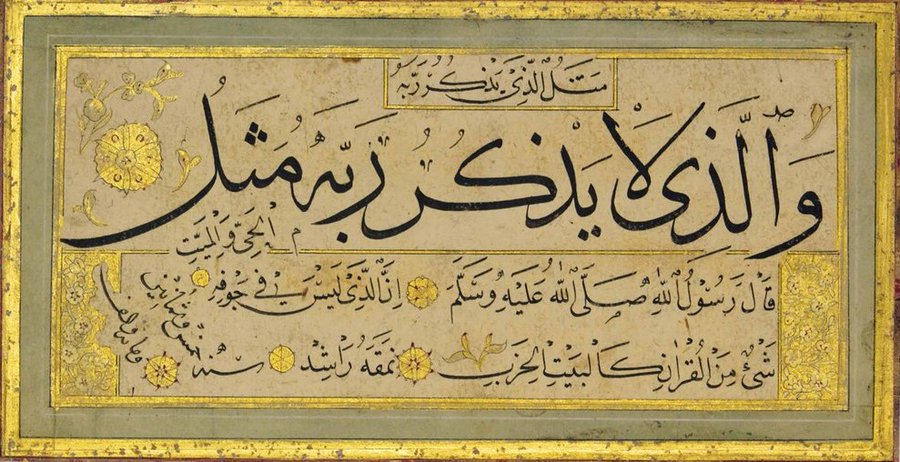 مَثَلُ الَّذِي يَذْكُرُ رَبَّهُ
وَالَّذِي لَا يَذْكُرُ رَبَّهُ مَثَلُ
الْحَيِّ وَالْمَيِّتِ
قَالَ رَسُولُ اللهِ صَلَّى اللهُ عَلَيْهِ وَسَلَّمَ اِنَّ الَّذِي لَيْسَ فِي جَوْفِهِ
شَيْءٌ مِنَ الْقُرْاٰنِ كَالْبَيْتِ الْخَرِبِ نمقه راشد سنه